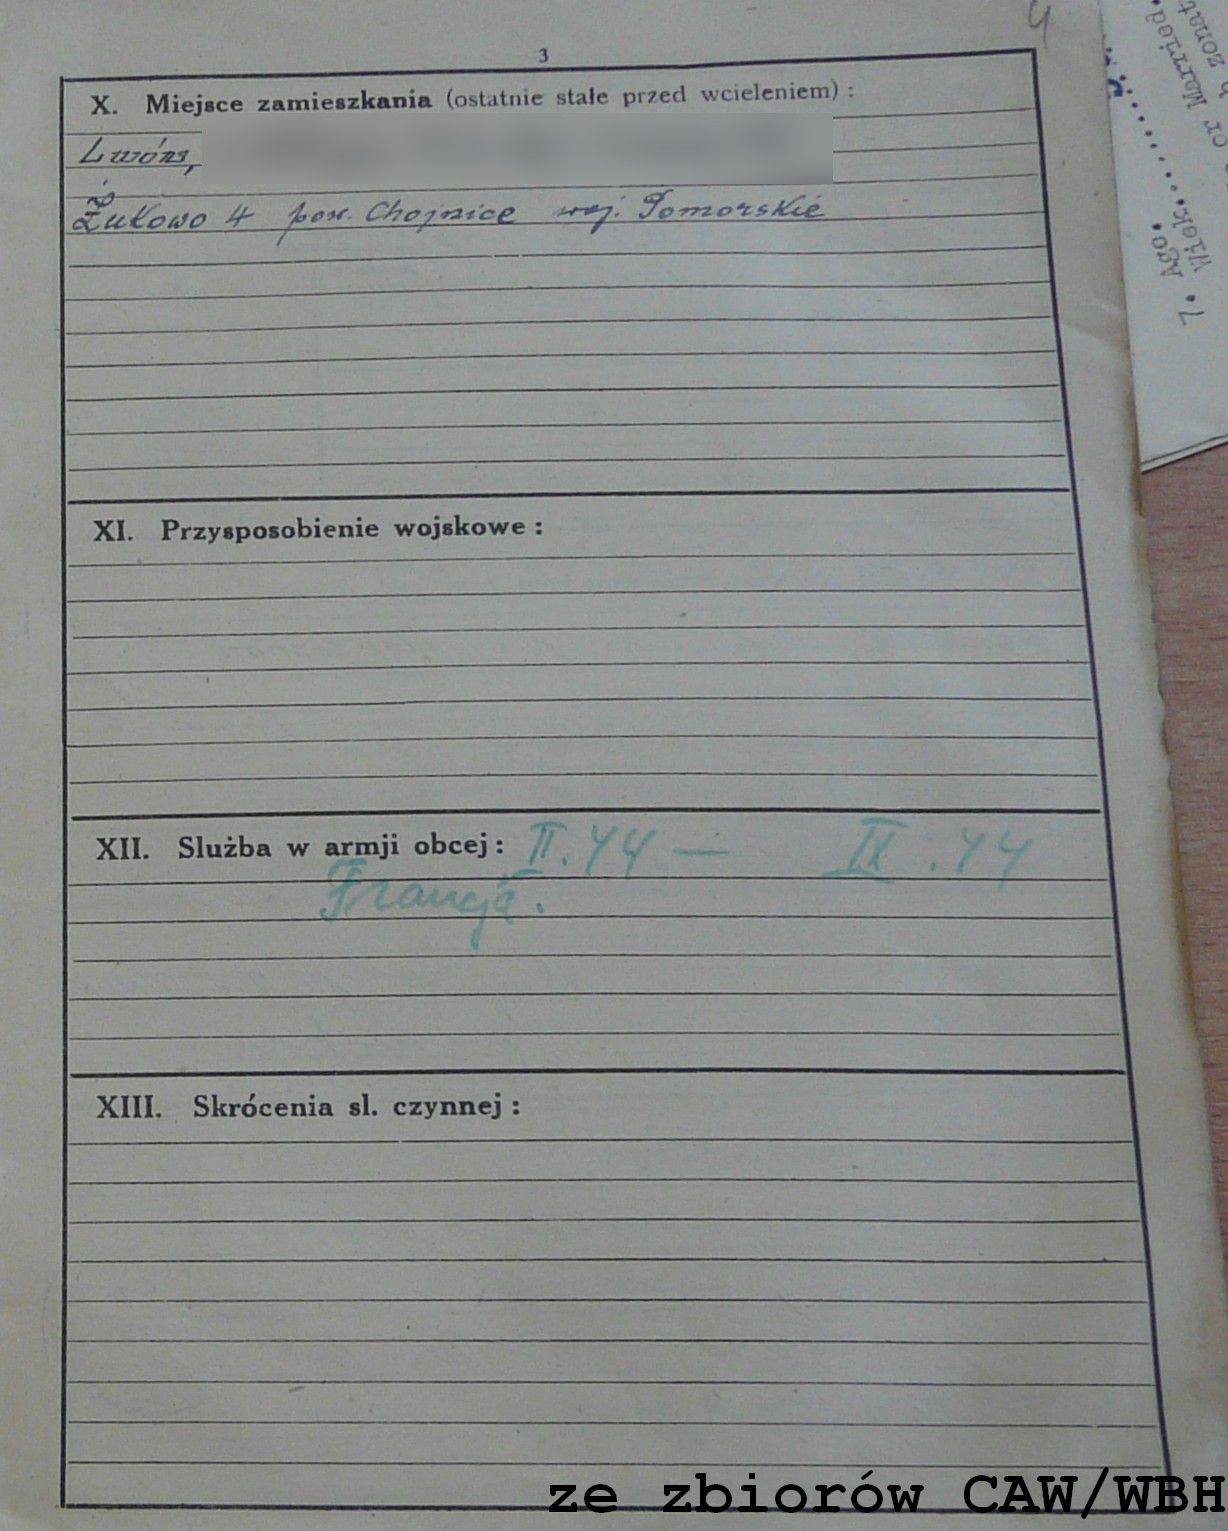 3
X. Miejsce zamieszkania (ostatnie stałe przed wcieleniem) :
Lwów,
Żukowo 4 pow. Chojnice woj. Pomorskie
XI. Przysposobienie wojskowe :
XII. Służba w armji obcej : II.44 — IX.44
Francja.
XIII. Skrócenia sł. czynnej :
or Married.
żonat
7. Age.
Wiek
ze zbiorów CAW/WBH